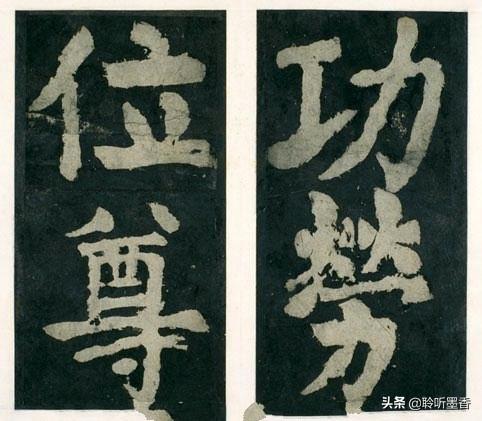 功勞
位尊
头条 @聆听墨香